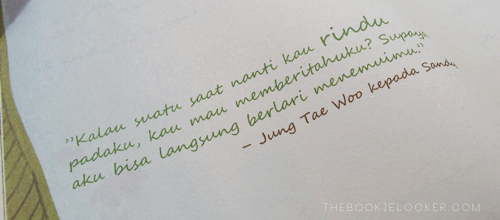 "Kalau suatu saat nanti kau rindu
padaku, kau mau memberitahuku? Supaya
aku bisa langsung berlari menemuimu."
– Jung Tae Woo kepada Sandy
THEBOOKIELOOKER.COM